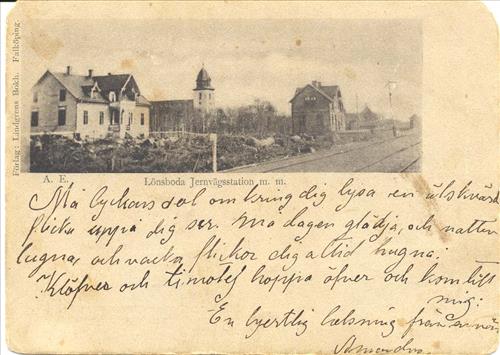 Förlag: Lindgrens Bokh. Falköping.
A. E. Lönsboda Jernvägsstation m. m.
Må lyckans sol omkring dig lysa en älskvärd
flicka uppå dig ser. Må dagen glädja, och natten
lugna, och vackra flickor dig altid hugna.
Klöfver och timotej hoppa öfver och kom till
mig.
En hjertlig helsning från en vän